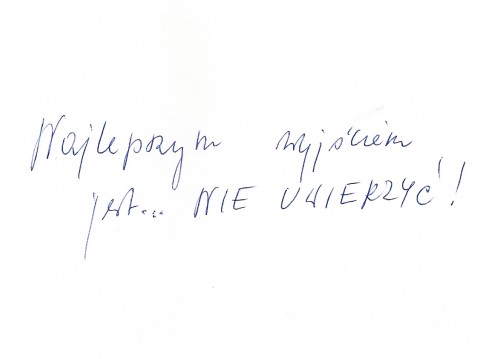 Najlepszym wyjściem
jest... NIE UWIERZYĆ!